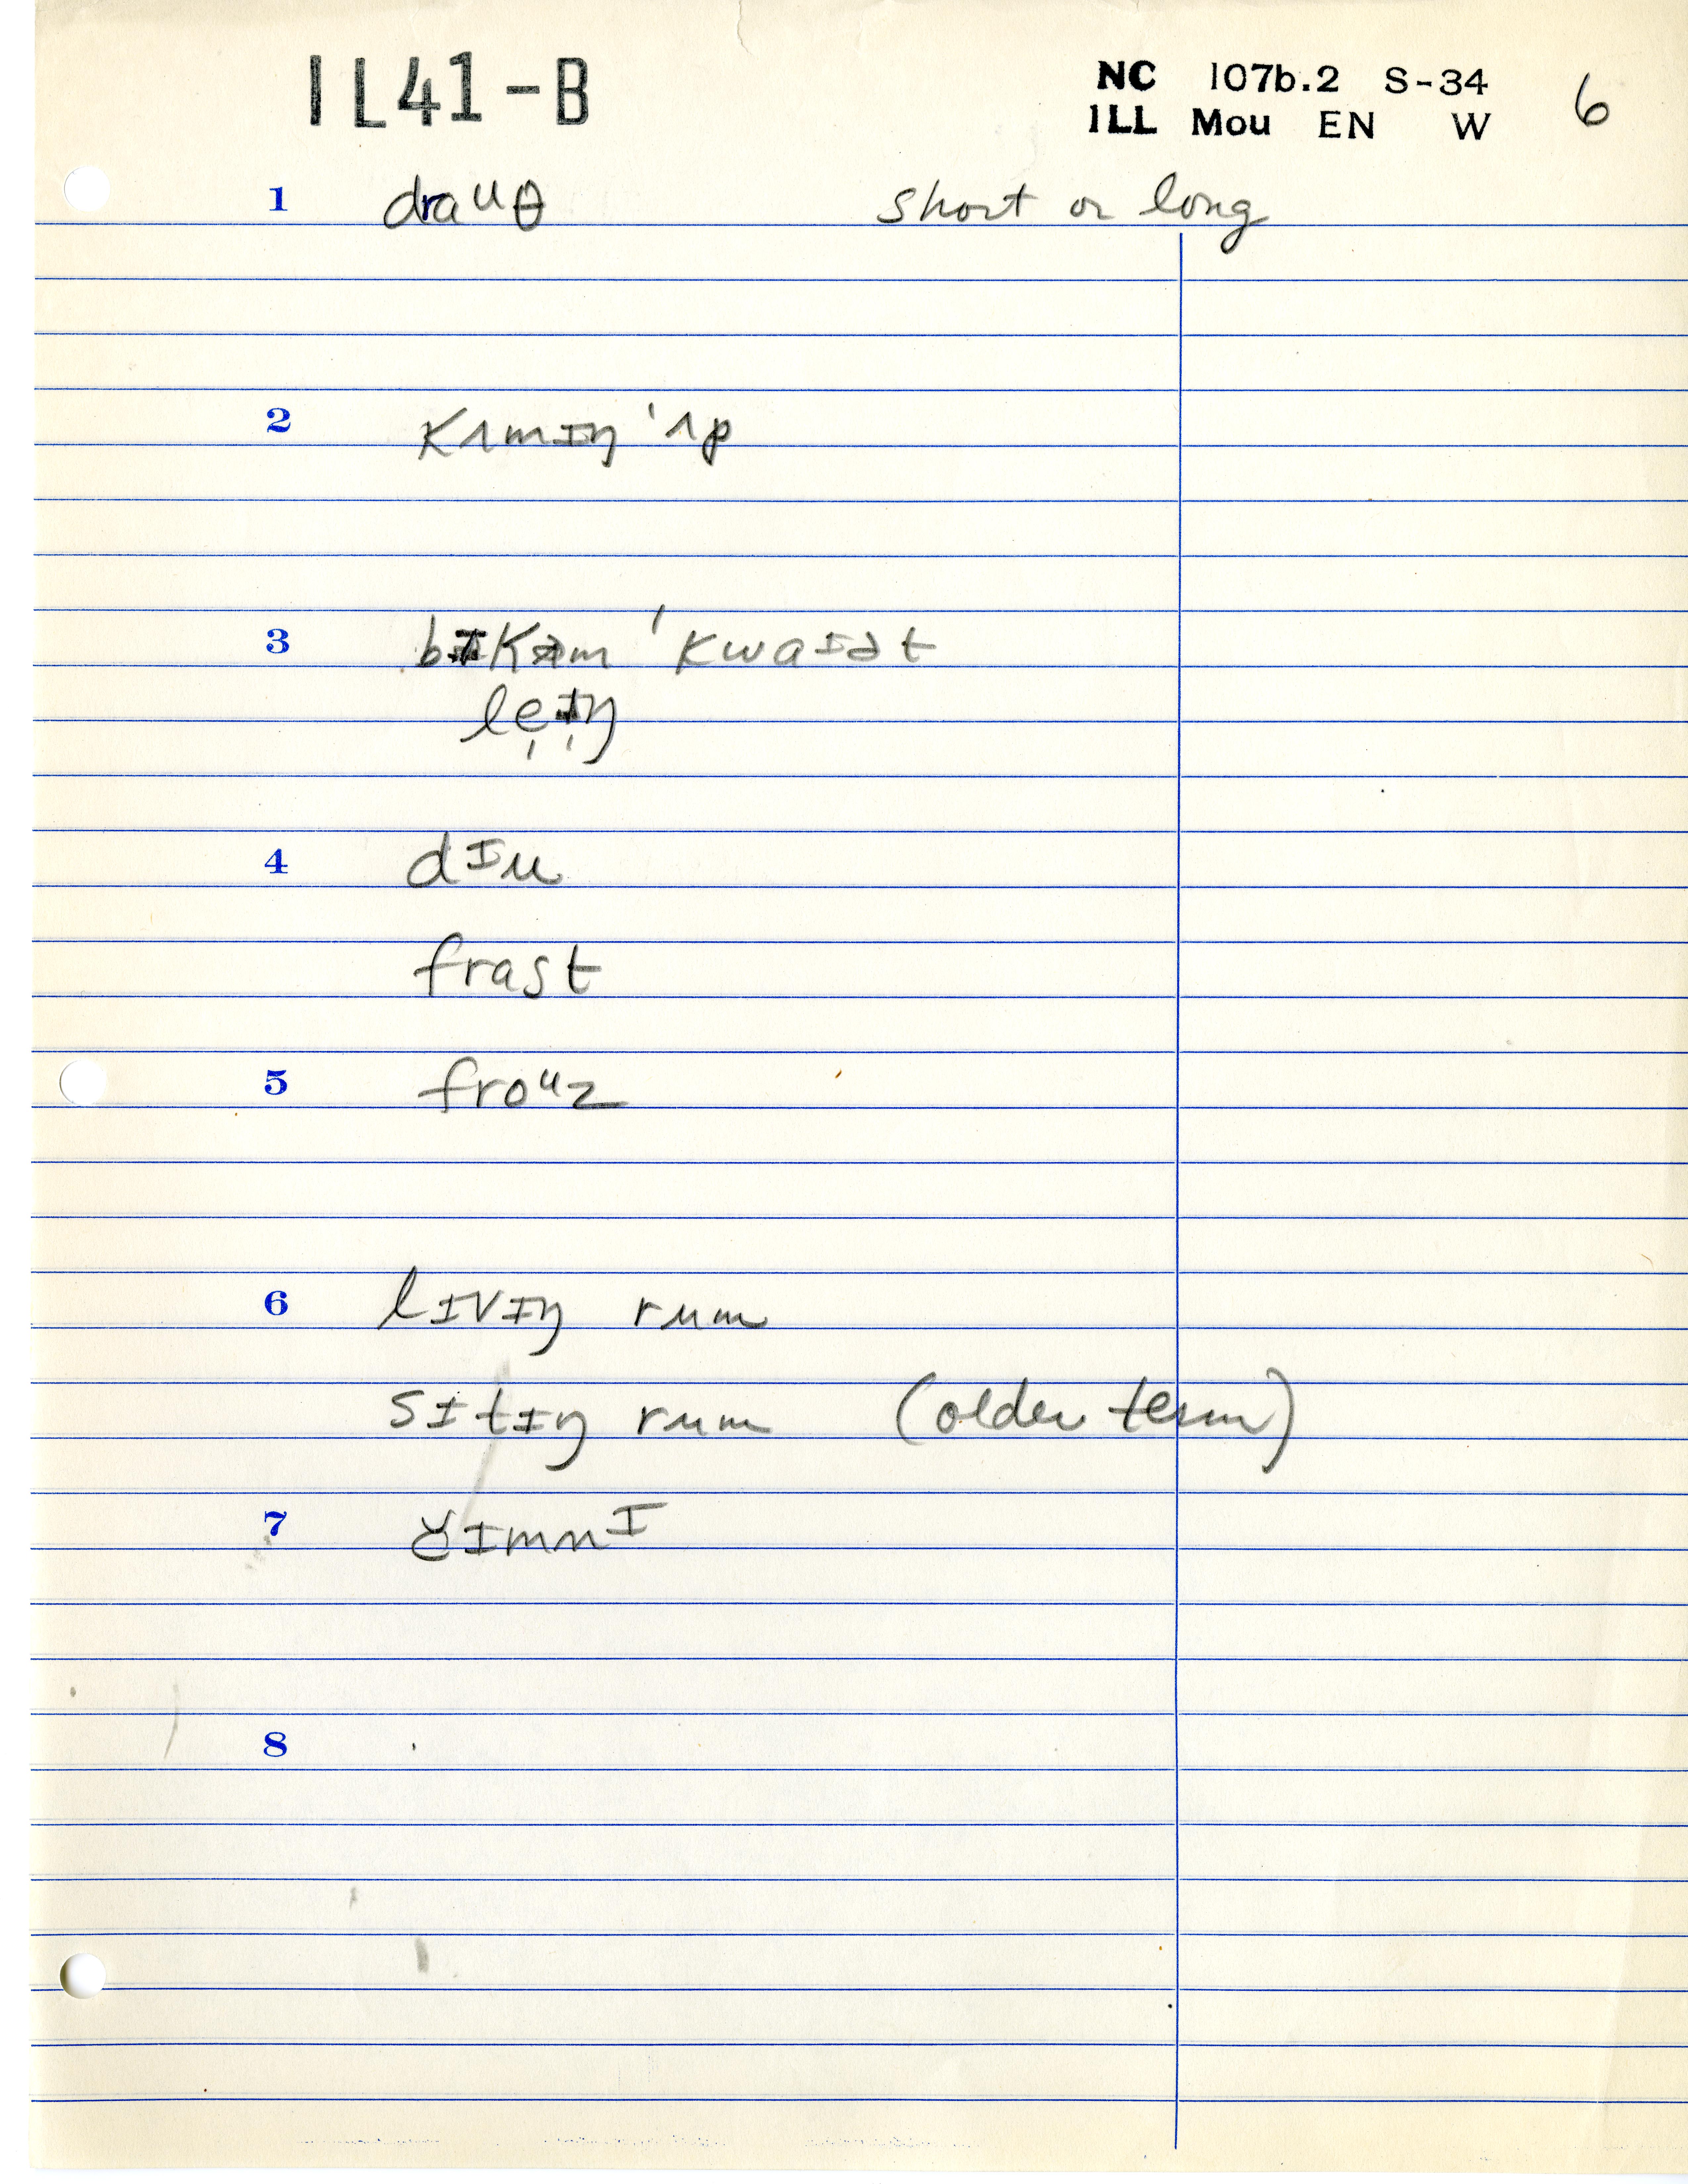 IL41-B
NC 107b.2 S-34 6
ILL Mou EN W
1 draᵘθ short or long
2 kʌmɪŋ ˈʌp
3 bɪkəm ˈkwaɪət
leɪŋ
4 dɪu
frast
5 froᵘz
6 lɪvɪŋ rum
sɪtɪŋ rum (older term)
7 tʃɪmnɪ
8